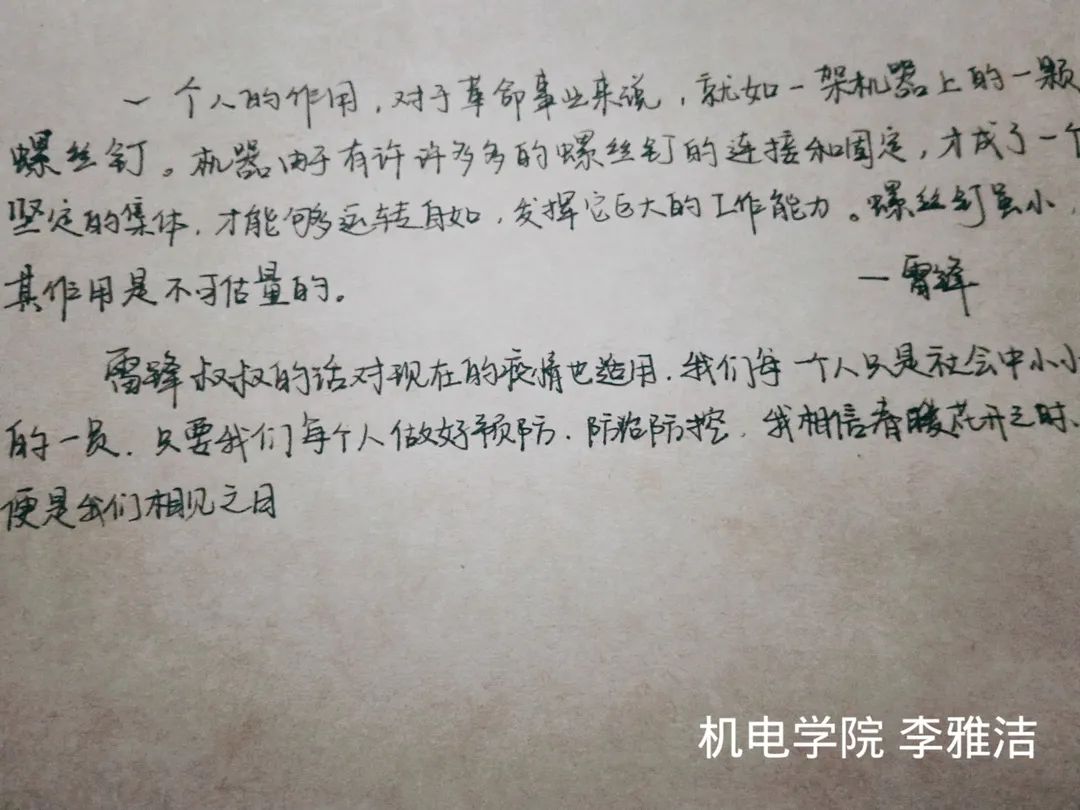 一个人的作用,对于革命事业来说,就如一架机器上的一颗
螺丝钉。机器由于有许许多多的螺丝钉的连接和固定,才成了一个
坚定的集体,才能够运转自如,发挥它巨大的工作能力。螺丝钉虽小,
其作用是不可估量的。 —雷锋
雷锋叔叔的话对现在的疫情也适用.我们每一个人只是社会中小小
的一员.只要我们每个人做好预防.防治防控,我相信春暖花开之时、
便是我们相见之日
机电学院 李雅洁